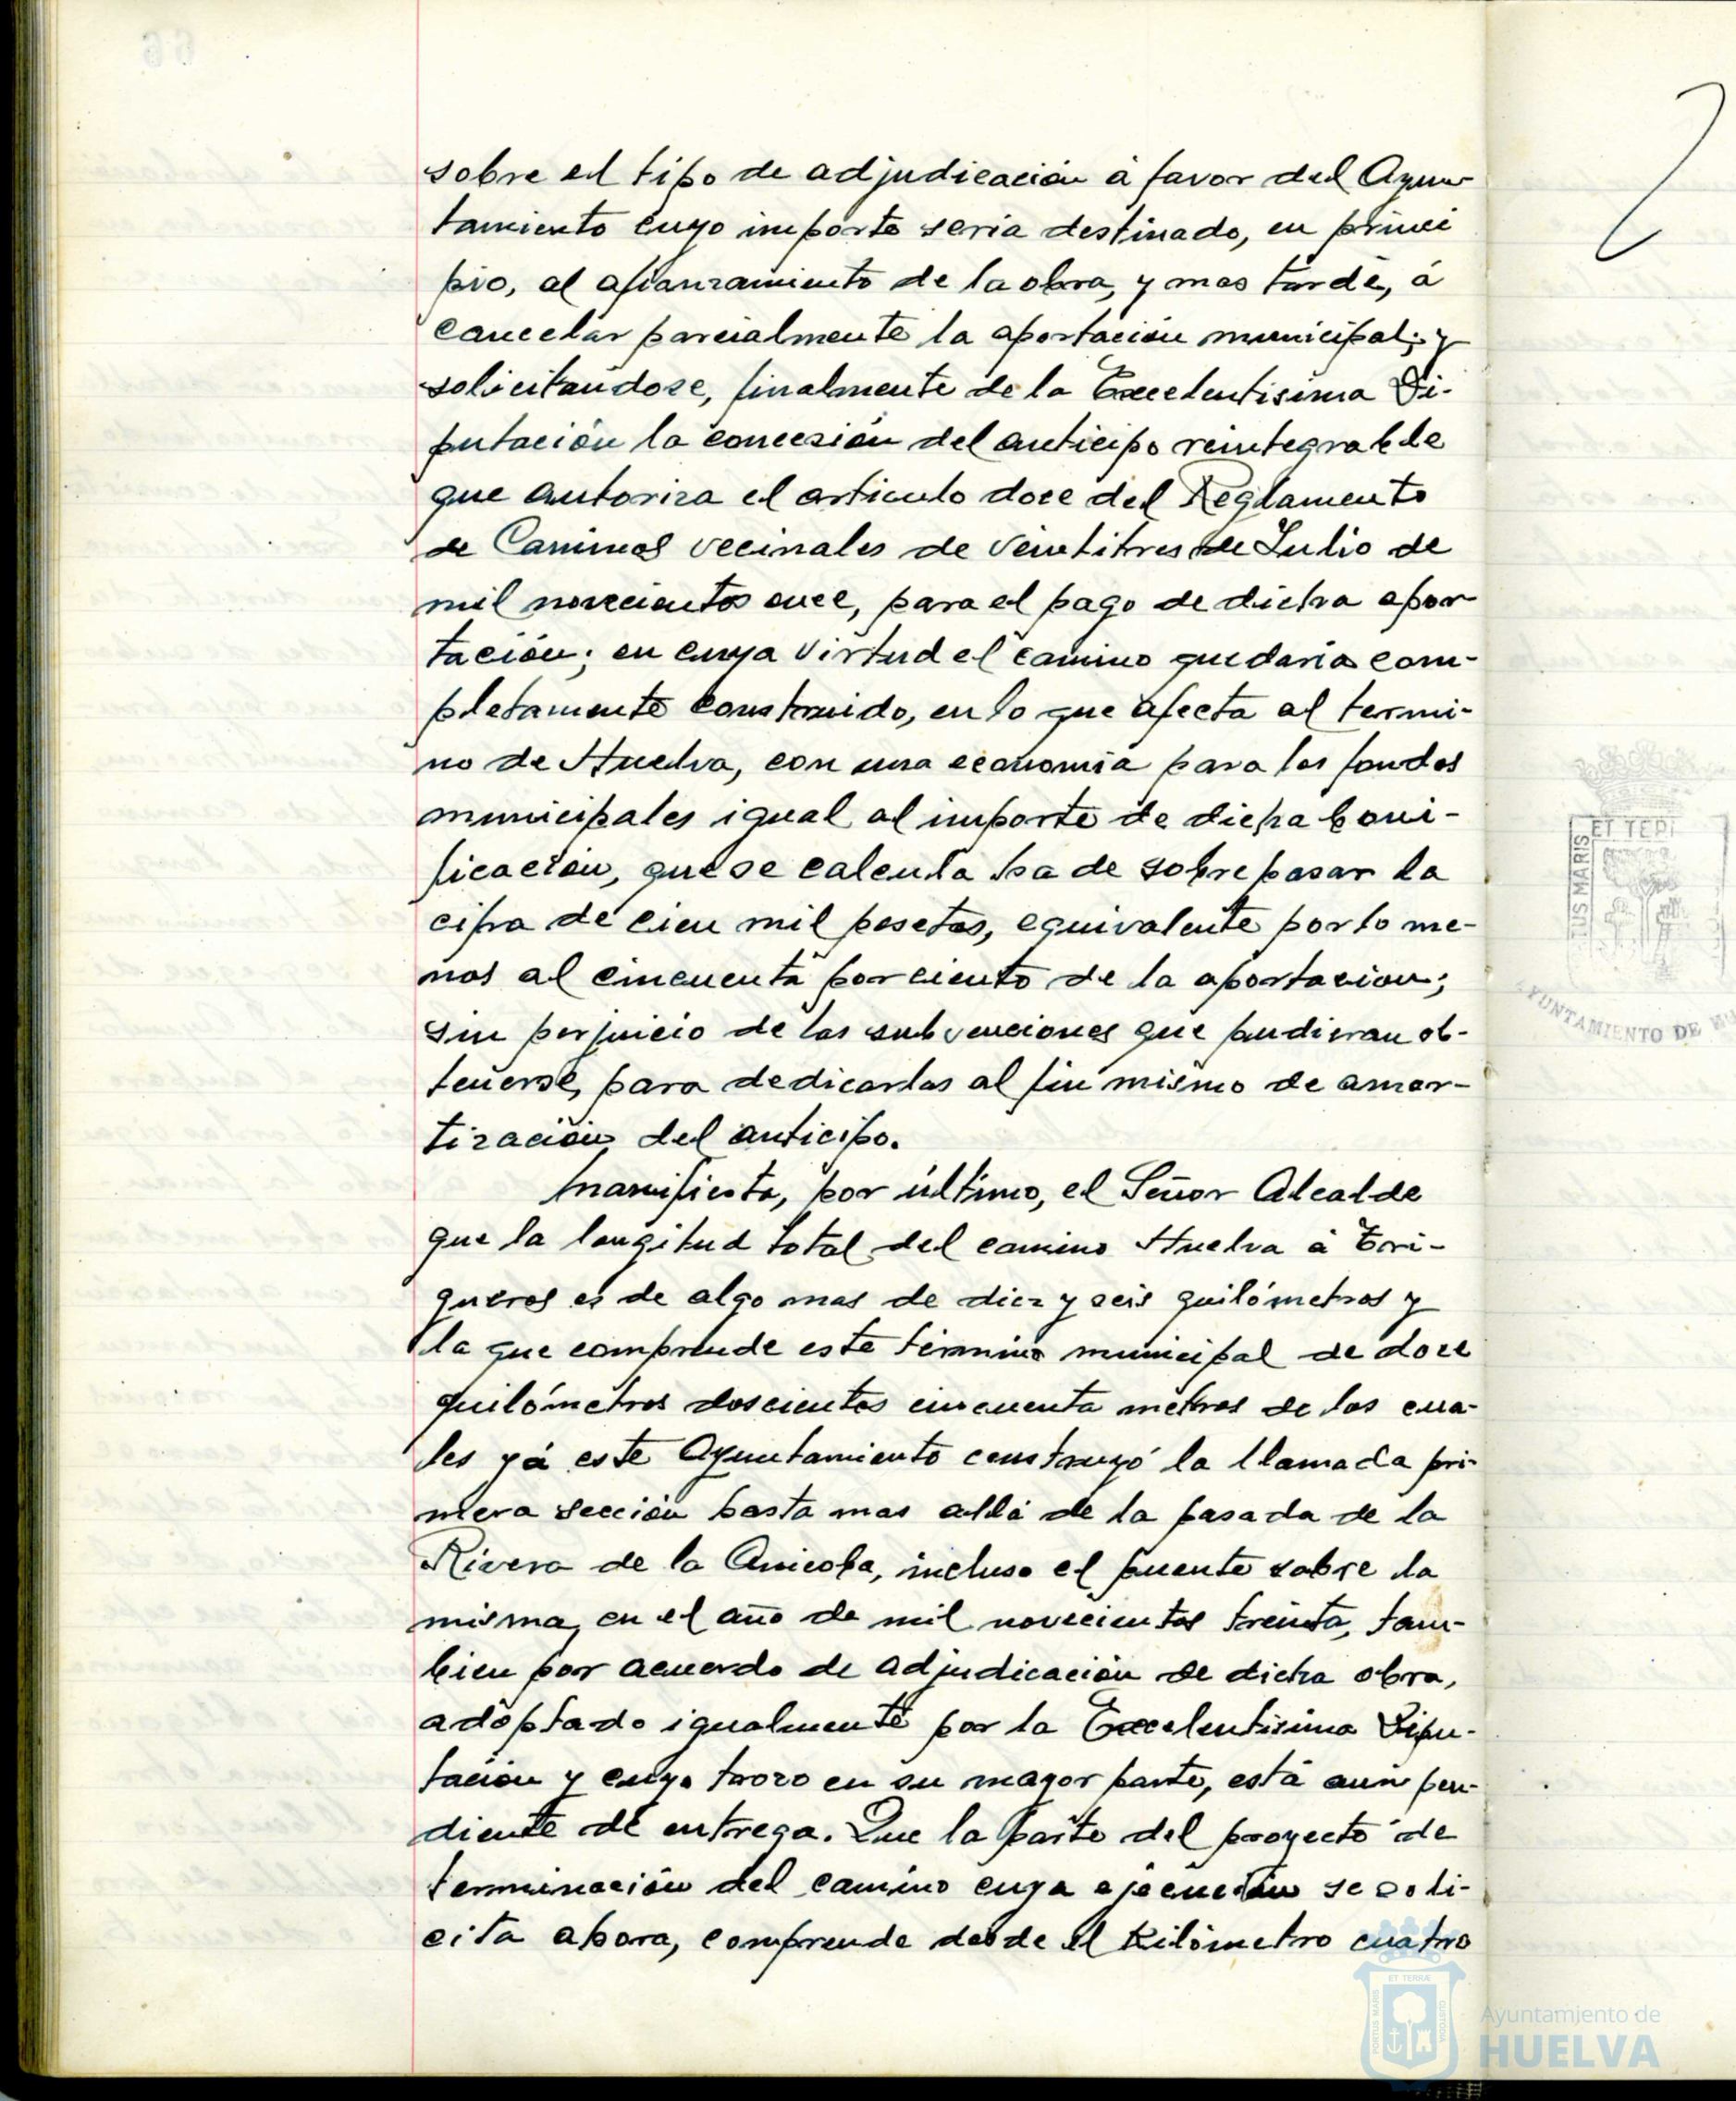 sobre el tipo de adjudicación á favor del Ayun-
tamiento cuyo importe seria destinado, en princi
pio, al afianzamiento de la obra, y mas tarde, á
cancelar parcialmente la aportación municipal; y
solicitandose, finalmente de la Excelentisima Di-
putación la concesión del anticipo reintegrable
que autoriza el articulo doce del Reglamento
de Caminos vecinales de veintitres de Julio de
mil novecientos once, para el pago de dicha apor-
tación; en cuya virtud el camino quedaria com-
pletamente construido, en lo que afecta al termi-
no de Huelva, con una economia para los fondos
municipales igual al importe de dicha boni-
ficación, que se calcula ha de sobrepasar la
cifra de cien mil pesetas, equivalente por lo me-
nos al cincuenta por ciento de la aportacion;
sin perjuicio de las subvenciones que pudieran ob-
tenerse, para dedicarlas al fin mismo de amor-
tización del anticipo.
Manifiesta, por último, el Señor Alcalde
que la longitud total del camino Huelva á Tri-
gueros es de algo mas de diez y seis quilómetros y
la que comprende este término municipal de doce
quilómetros doscientos cincuenta metros de los cua-
les yá este Ayuntamiento construyó la llamada pri-
mera sección hasta mas allá de la pasada de la
Rivera de la Anicoba, incluso el puente sobre la
misma, en el año de mil novecientos treinta, tam-
bien por acuerdo de adjudicación de dicha obra,
adoptado igualmente por la Excelentisima Dipu-
tación y cuyo trozo en su mayor parte, está aun pen-
diente de entrega. Que la parte del proyecto de
terminación del camino cuya ejecución se soli-
cita ahora, comprende desde el Kilómetro cuatro
ET TERRÆ
PORTUS MARIS
CUSTODIA
Ayuntamiento de
HUELVA
AYUNTAMIENTO DE